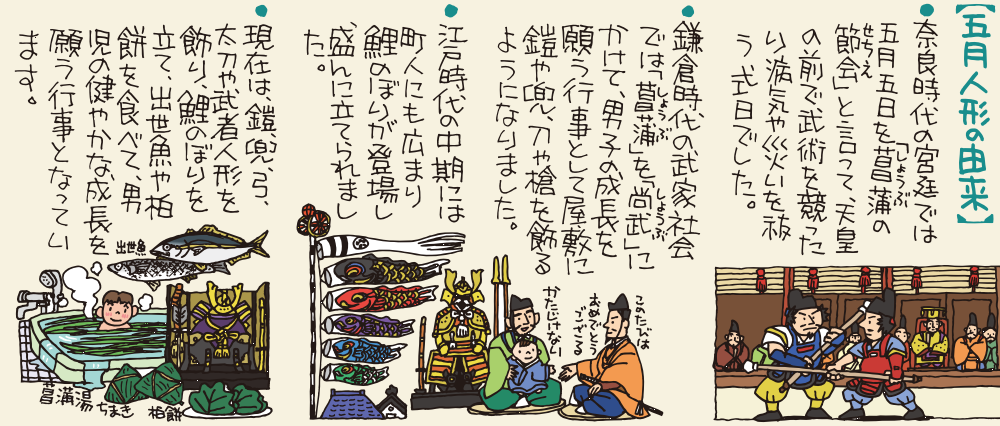 【五月人形の由来】
●奈良時代の宮廷では
五月五日を菖蒲の
しょうぶ
節会」と言って、天皇
せちえ
の前で武術を競った
り病気や災いを祓
う式日でした。
●鎌倉時代の武家社会
では「菖蒲」を「尚武」に
しょうぶ
しょうぶ
かけて、男子の成長を
願う行事として屋敷に
鎧や兜、刀や槍を飾る
ようになりました。
●江戸時代の中期には
町人にも広まり
鯉のぼりが登場し
盛んに立てられまし
た。
●現在は、鎧、兜、弓、
太刀や武者人形を
飾り、鯉のぼりを
立て、出世魚や柏
餅を食べて、男
児の健やかな成長を
願う行事となってい
ます。
このたびは
おめでとう
ございる
かたじけない
出世魚
菖蒲湯
ちまき
柏餅